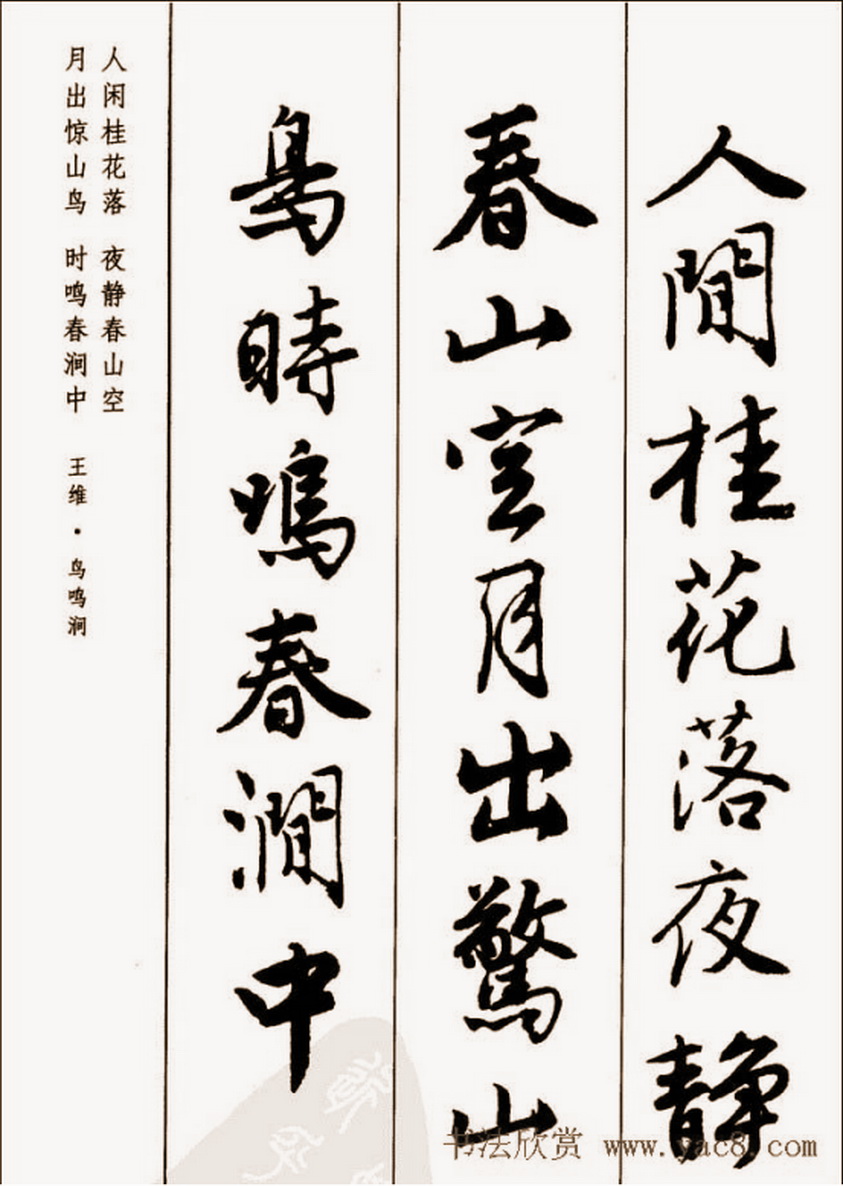 人閒桂花落夜静
春山空月出驚山
鳥時鳴春澗中
人闲桂花落 夜静春山空
月出惊山鸟 时鸣春涧中 王维·鸟鸣涧
书法欣赏 www.yac8.com